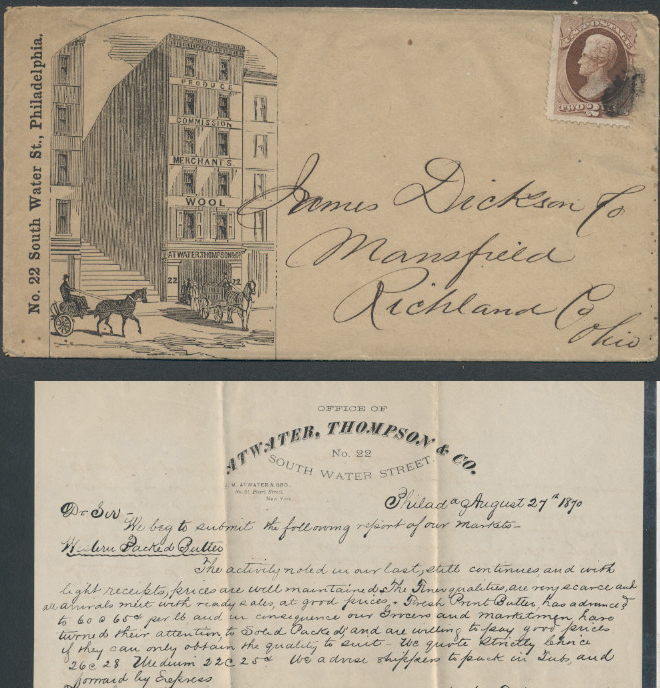 No. 22 South Water St., Philadelphia.
PRODUCE
COMMISSION
MERCHANTS
WOOL
ATWATER, THOMPSON & CO
22
22
U.S. POSTAGE
TWO
James Dickson Co
Mansfield
Richland Co
Ohio
OFFICE OF
ATWATER, THOMPSON & CO.
No. 22
SOUTH WATER STREET
J. M. ATWATER & BRO.
No. 61 Pearl Street,
New York
Philada August 27th 1870
Dr Sir -
We beg to submit the following report of our markets -
Western Packed Butter
The activity noted in our last, still continues, and with
light receipts, prices are well maintained. The finer qualities, are very scarce and
all arrivals meet with ready sales, at good prices - Fresh Print Butter, has advanced
to 60 @ 65¢ per lb and in consequence our Grocers and marketmen, have
turned their attention, to Solid Packed and are willing to pay good prices
if they can only obtain the quality to suit - We quote Strictly Choice
26 @ 28 Medium 22 @ 25¢ We advise shippers to pack in Tubs, and
forward by Express